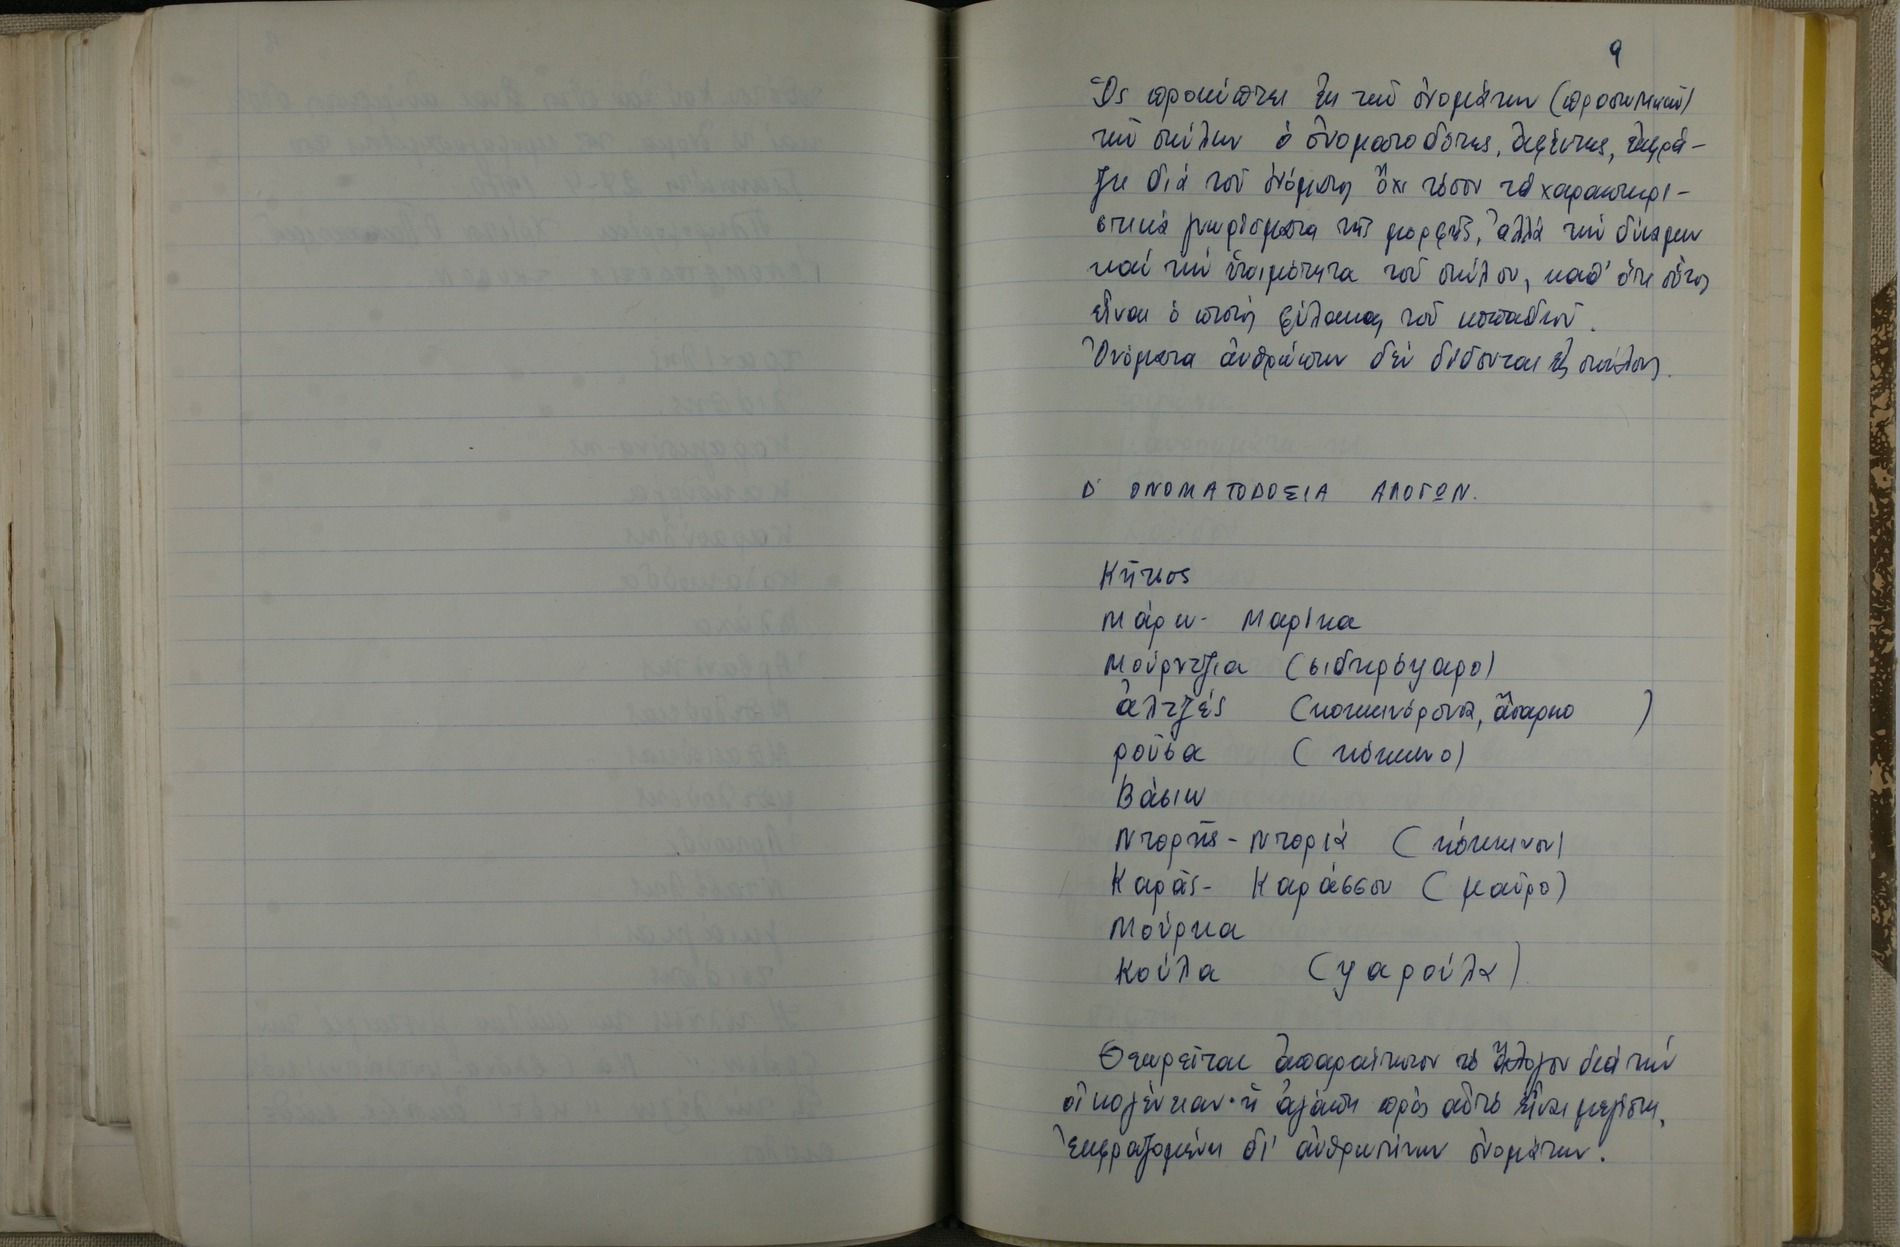 9
Ὡς προκύπτει ἐκ τῶν ὀνομάτων (προσωπικῶν)
τῶν σκύλων ὁ ὀνοματοδότης, ἀφέντης, ἐκφρά-
ζει διά τοῦ ὀνόματος ὄχι τόσον τά χαρακτηρι-
στικά γνωρίσματα τῆς μορφῆς, ἀλλά τήν δύναμιν
καί τήν ἑτοιμότητα τοῦ σκύλου, καθ' ὅτι οὗτος
εἶναι ὁ πιστός φύλακας τοῦ κοπαδιοῦ.
Ὀνόματα ἀνθρώπων δέν δίδονται εἰς σκύλους.
Δ' ΟΝΟΜΑΤΟΔΟΣΙΑ ΑΛΟΓΩΝ.
Κῆτσος
Μάρω - Μαρίκα
Μούρντζια (σιδηρόψαρο)
ἀλτζές (κοκκινόρουσο, ἄσπρο )
ροῦσα (κόκκινο)
Βάσιω
Ντορῆς - Ντοριά (κόκκινον)
Καρᾶς - Καράσσου (μαῦρο)
Μούρκα
Κούλα (ψαρούλα)
Θεωρεῖται ἀπαραίτητον τό ἄλογον διά τήν
οἰκογένειαν· ἡ ἀγάπη πρός αὐτό εἶναι μεγίστη,
ἐκφραζομένη δι' ἀνθρωπίνων ὀνομάτων.